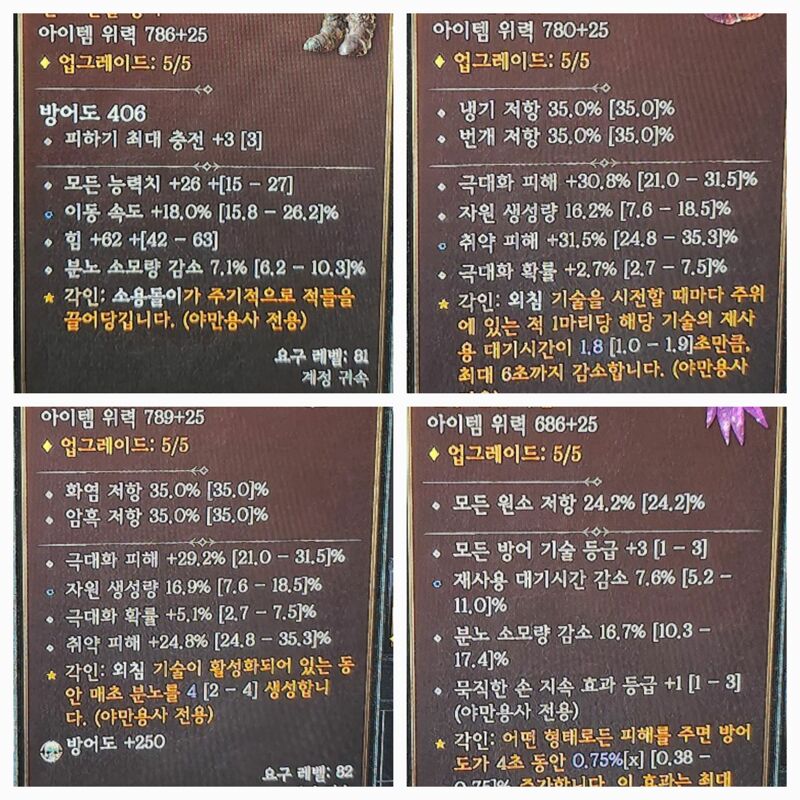 아이템 위력 786+25
업그레이드: 5/5
방어도 406
피하기 최대 충전 +3 [3]
모든 능력치 +26 +[15 - 27]
이동 속도 +18.0% [15.8 - 26.2]%
힘 +62 +[42 - 63]
분노 소모량 감소 7.1% [6.2 - 10.3]%
각인: 소용돌이가 주기적으로 적들을
끌어당깁니다. (야만용사 전용)
요구 레벨: 81
계정 귀속
아이템 위력 780+25
업그레이드: 5/5
냉기 저항 35.0% [35.0]%
번개 저항 35.0% [35.0]%
극대화 피해 +30.8% [21.0 - 31.5]%
자원 생성량 16.2% [7.6 - 18.5]%
취약 피해 +31.5% [24.8 - 35.3]%
극대화 확률 +2.7% [2.7 - 7.5]%
각인: 외침 기술을 시전할 때마다 주위
에 있는 적 1마리당 해당 기술의 재사
용 대기시간이 1.8 [1.0 - 1.9]초만큼,
최대 6초까지 감소합니다. (야만용사
아이템 위력 789+25
업그레이드: 5/5
화염 저항 35.0% [35.0]%
암흑 저항 35.0% [35.0]%
극대화 피해 +29.2% [21.0 - 31.5]%
자원 생성량 16.9% [7.6 - 18.5]%
극대화 확률 +5.1% [2.7 - 7.5]%
취약 피해 +24.8% [24.8 - 35.3]%
각인: 외침 기술이 활성화되어 있는 동
안 매초 분노를 4 [2 - 4] 생성합니
다. (야만용사 전용)
방어도 +250
요구 레벨: 82
아이템 위력 686+25
업그레이드: 5/5
모든 원소 저항 24.2% [24.2]%
모든 방어 기술 등급 +3 [1 - 3]
재사용 대기시간 감소 7.6% [5.2 -
11.0]%
분노 소모량 감소 16.7% [10.3 -
17.4]%
묵직한 손 지속 효과 등급 +1 [1 - 3]
(야만용사 전용)
각인: 어떤 형태로든 피해를 주면 방어
도가 4초 동안 0.75%[x] [0.38 -
0.75]% 증가합니다. 이 효과는 최대